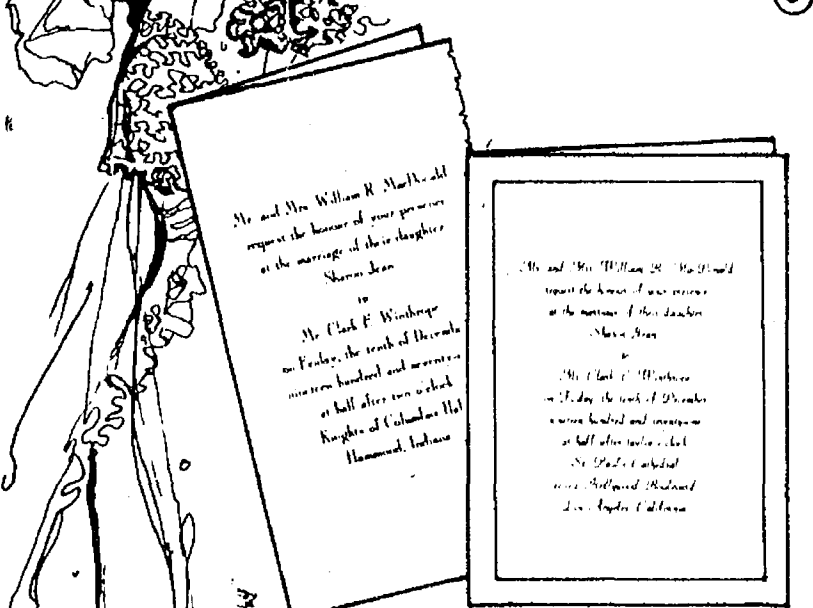 Mr. and Mrs. William R. MacDonald
request the honour of your presence
at the marriage of their daughter
Sharon Jean
to
Mr. Clark F. Winthrope
on Friday, the tenth of Decembe
nineteen hundred and seventy-o
at half after two o'clock
Knights of Columbus Hal
Hammond, Indiana
Mr. and Mrs. William R. MacDonald
request the honour of your presence
at the marriage of their daughter
Sharon Jean
to
Mr. Clark F. Winthrope
on Friday, the tenth of December
nineteen hundred and seventy-one
at half after twelve o'clock
St. Paul's Cathedral
Hollywood Boulevard
Los Angeles, California